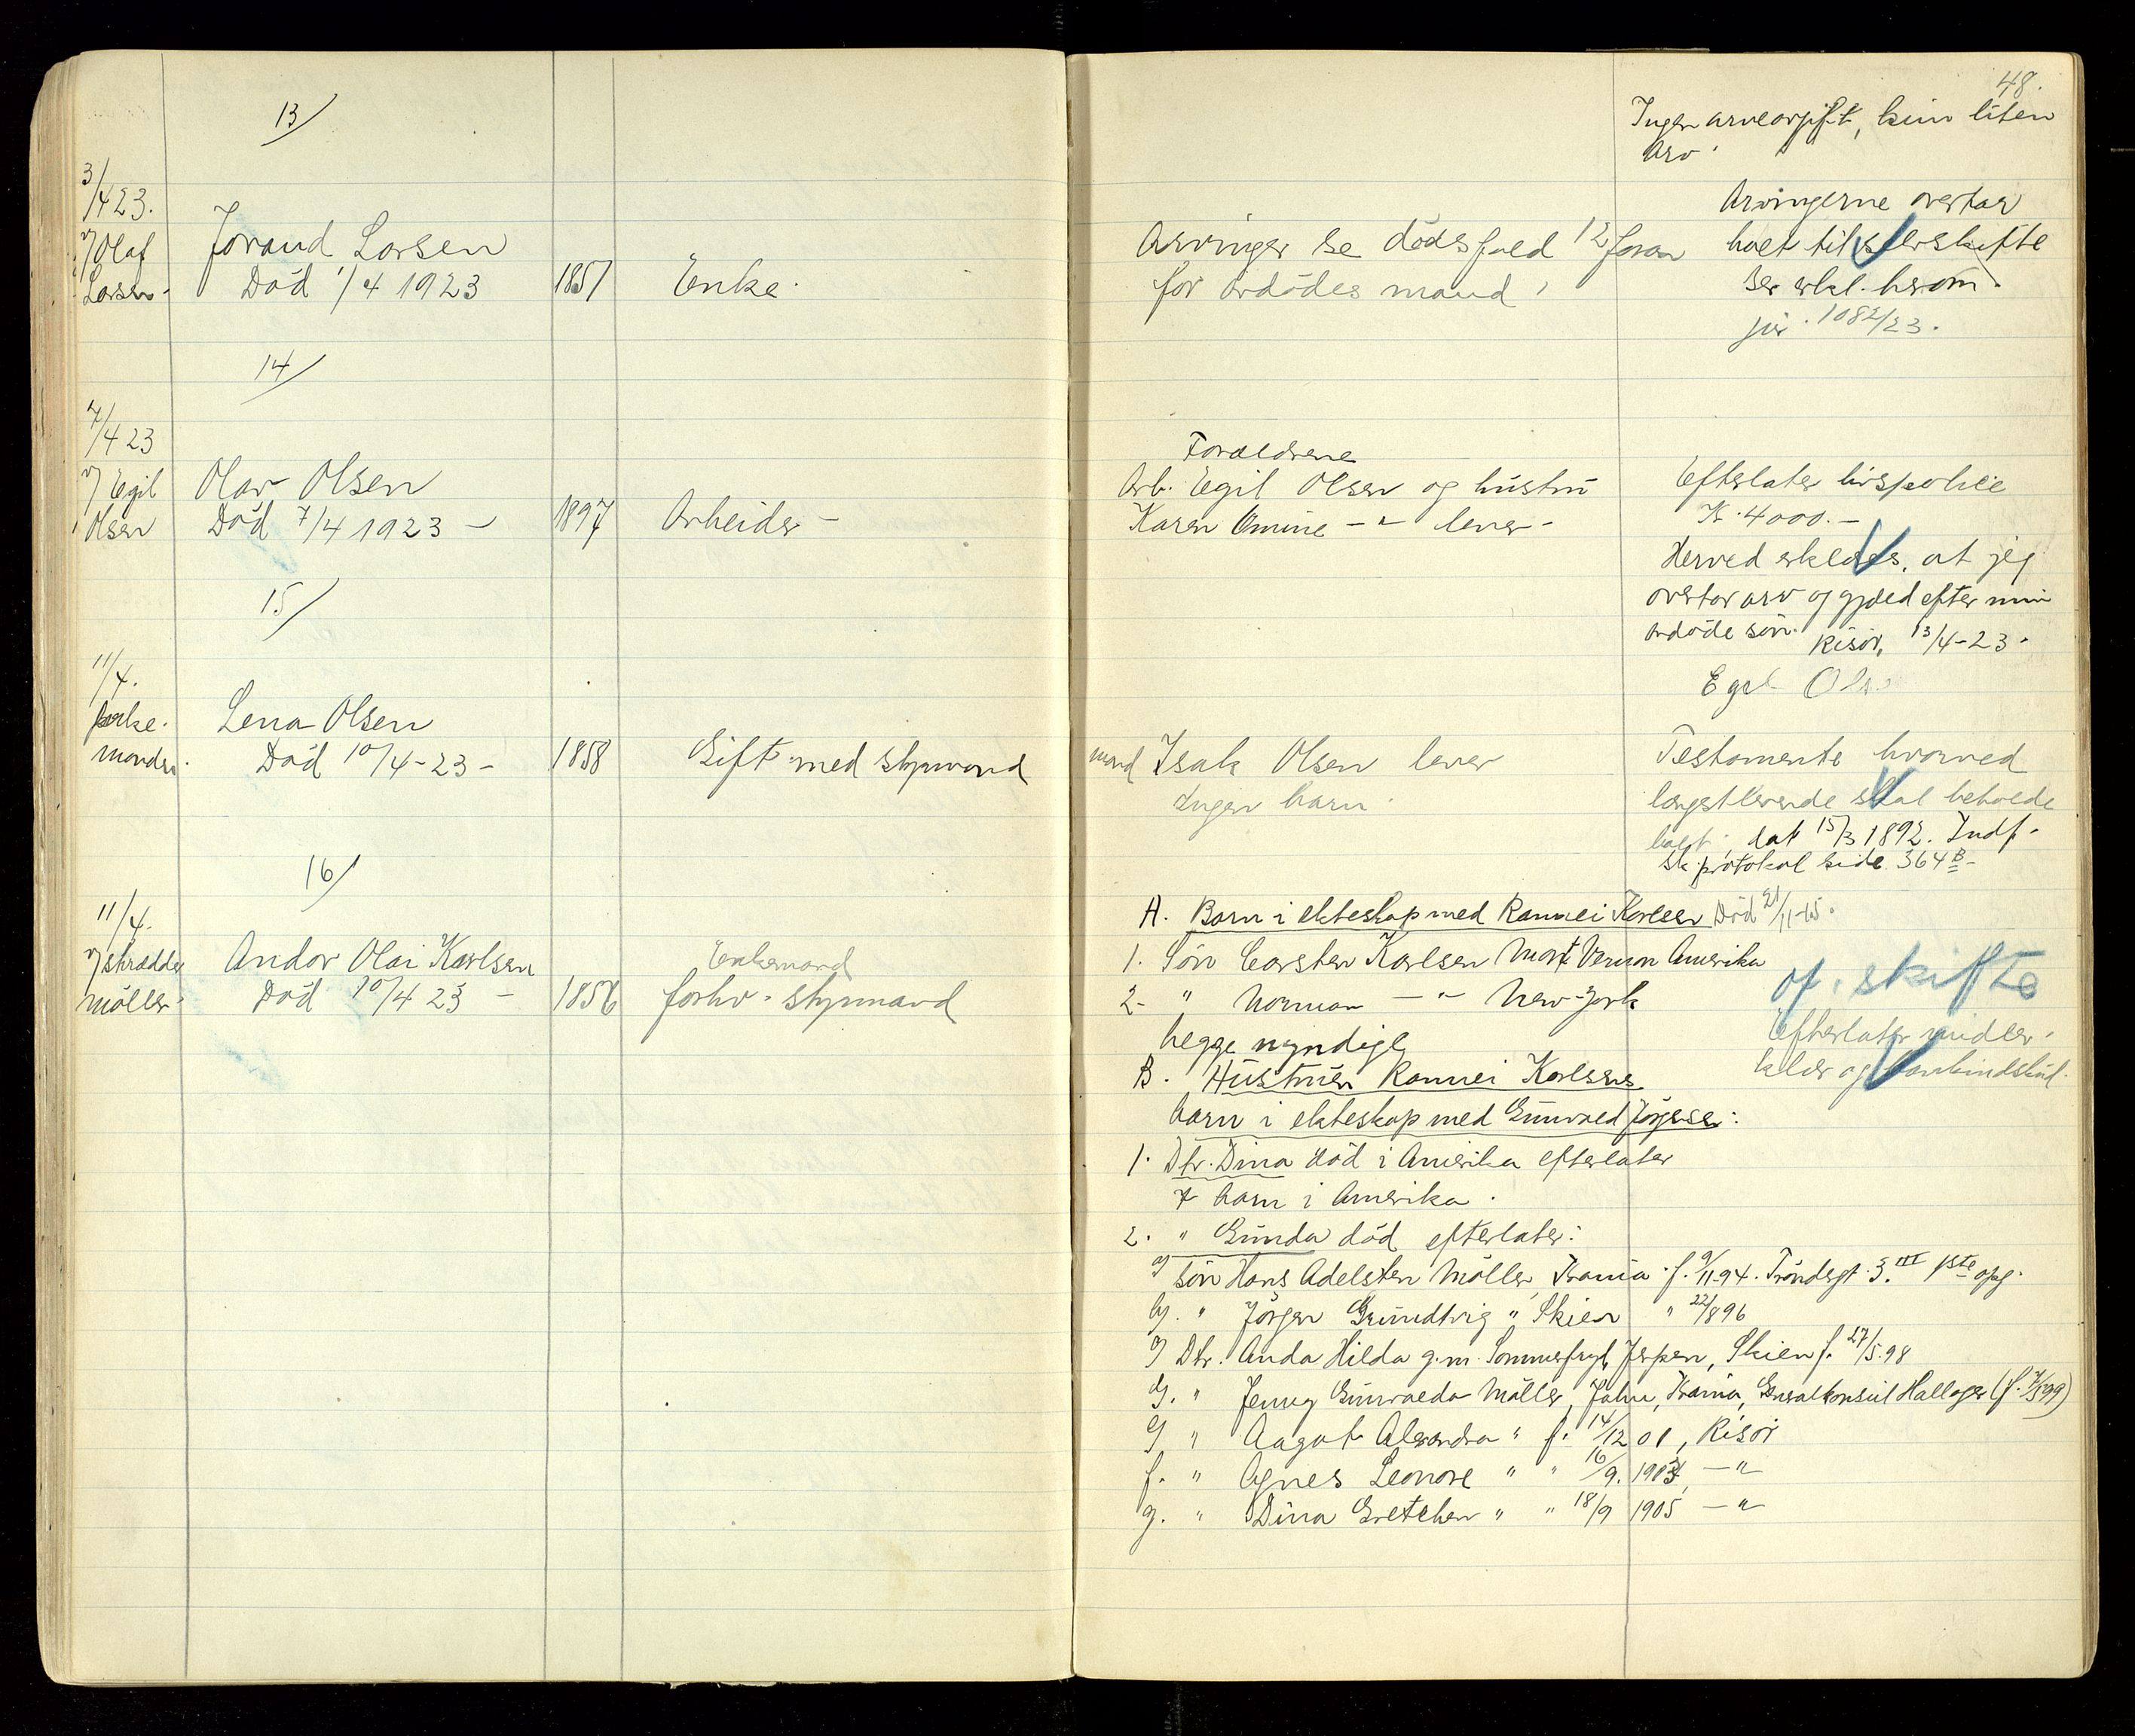 48.
Ingen arveavgift, kun liten
arv.
13/
3/4 23.
v/ Olaf
Larsen.
Jorand Larsen
Död 1/4 1923
1857
Enke.
Arvinger se dödsfald 12 foran
for avdödes mand.
Arvingerne overtar
boet til
Se erkl. herom.
jnr. 1082/23.
14/
7/4 23
v/ Egil
Olsen
Olav Olsen
Död 7/4 1923 –
1897
Arbeider –
Forældrene
Arb. Egil Olsen og hustru
Karen Omine –"– lever –
Efterlater livspolice
K. 4000.–
Herved erklæres, at jeg
overtar arv og gjæld efter min
avdöde sön. Risör, 13/4-23.
Egil
15/
11/4.
kirke-
manden.
Lena Olsen
Död 10/4-23 –
1858
Gift med styrmand
mand Isak Olsen lever
Ingen barn.
Testamente hvorved
længstlevende skal beholde
boet, dat 15/3 1892. Indf.
sk. protokol side 364 B –
16/
11/4.
v/ skrædder
Möller.
Andor Olai Karlsen
Död 10/4 23 –
1856
Enkemand
forhv. styrmand
A. Barn i ekteskap med Rannei Karlsen Död 21/11-15.
1. Sön Carsten Karlsen Mont Vernon Amerika
2. " Norman –"– New-York
begge myndige
of. skifte
Efterlater midler.
klær og
B. Hustruen Rannei Karlsens
barn i ekteskap med Gunvald Jörgensen:
1. Dtr. Dina död i Amerika efterlater
7 barn i Amerika.
2. " Gunda död efterlater:
a) sön Hans Adelsten Möller, Krania f. 9/11-94. Tröndergt. 3.III 1ste opg.
b). " Jörgen Grundtvig " Skien " 22/8 96
c) Dtr. Anda Hilda g.m. Jespen, Skien f. 27/5.98
d). " Jenny Gunvalda Möller, Krania, Generalkonsul Hallager
e) " Aagot Alexandra " f. 14/12 01, Risör
f. " Agnes Leonore " " 16/9. 1903, –"
g. " Dina Gretchen " " 18/9 1905 –"